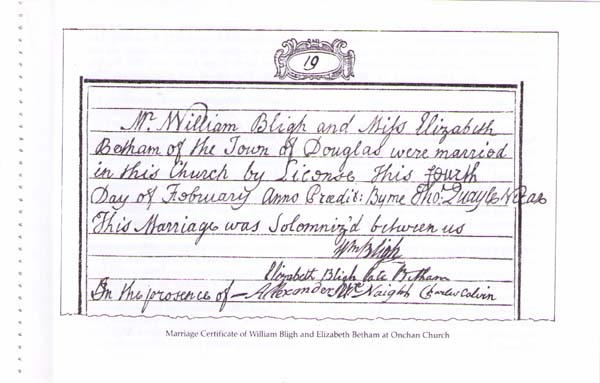 19
Mr. William Bligh and Miss Elizabeth
Betham of the Town of Douglas were married
in this Church by License this fourth
Day of February Anno Prædit: By me Tho: Quayle Vicar
This Marriage was Solemniz'd between us
Wm Bligh
Elizabeth Bligh late Betham
In the presence of - Alexander Charles Colvin
Marriage Certificate of William Bligh and Elizabeth Betham at Onchan Church